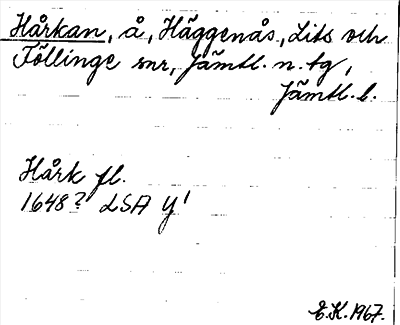 Hårkan, å, Häggenås, Lits och
Föllinge snr, Jämtl. n. tg,
Jämtl. l.
Hårk fl.
1648? LSA Y'
E.K. 1967.